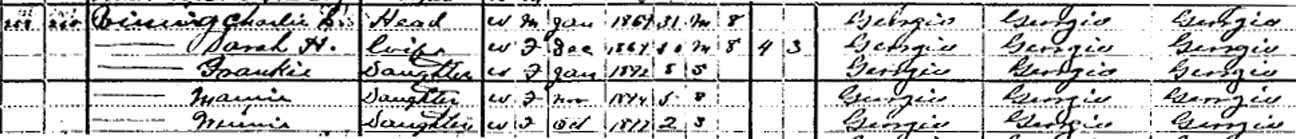 Vining Charlie L. Head W M Jan 1869 31 M 8 Georgia Georgia Georgia
Sarah H. Wife W F Dec 1869 30 M 8 4 3 Georgia Georgia Georgia
Frankie Daughter W F Jan 1892 8 S Georgia Georgia Georgia
Mamie Daughter W F Nov 1894 5 S Georgia Georgia Georgia
Minnie Daughter W F Oct 1897 2 S Georgia Georgia Georgia